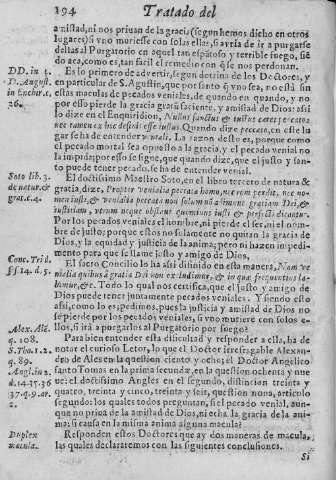 194 Tratado del
amistad, ni nos priuan de la gracia (segun hemos dicho en otros
lugares) si vno muriesse con solas ellas, si auria de ir a purgarse
dellas al Purgatorio en aquel tan espantoso y terrible fuego, siẽ-
do aca, como es, tan facil el remedio con q̃ se nos perdonan.
DD. in 1.
D. August.
in Enchir. c.
26.
Es lo primero de aduertir, segun dotrina de los Doctores, y
en particular de S. Agustin, que por santo q̃ vno sea, no està sin
esta macula de pecados veniales, de quando en quando, y no
por esso pierde la gracia gratũ faciente, y amistad de Dios: assi
lo dize en el Enquiridion, Nullus sanctus & iustus caret peccato:
nec tamen ex hoc desijt esse iustus. Quando dize peccato, en este lu
gar se ha de entender venial. La razon desto es, porque como
el pecado mortal sea opuesto a la gracia, y el pecado venial no
la impida; por esso se sigue, que quando dize, que el justo y san-
to puede tener pecado, se ha de entender venial.
Soto lib. 3.
de natur. &
grat. c. 4.
El doctissimo Maestro Soto, en el libro tercero de natura &
gratia, dize, Propter venialia peccata homo, nec rem perdit, nec no-
men iusti, & venialia peccata non solum nõ adimunt gratiam Dei, &
iustitiam, verum neque obstant quominus iusti & perfecti dicantur.
Por los pecados veniales el hombre, ni pierde el ser, ni el nom-
bre de justo; porque estos no solamente no quitan la gracia de
Dios, y la equidad y justicia de la anima; pero ni hazen impedi-
mento para que se llame justo y amigo de Dios.
Conc. Trid.
sess. 14. c. 5.
El sacro Concilio lo ha assi difinido en esta manera, Nam ve
nialia quibus à gratia Dei non excludimur, & in quæ frequentius la-
bimur, &c. Todo lo qual nos certifica, que el justo y amigo de
Dios puede tener juntamente pecados veniales. Y siendo esto
assi, como lo es; pedimos, pues la justicia y amistad de Dios no
se pierde por los pecados veniales, si vno muriere con solos e-
llos, si irà a purgarlos al Purgatorio por fuego?
Alex. Alẽ.
q. 108.
S. Thom. 1. 2.
q. 89.
Angl. in 2.
d. 14. 35. 36
37. q. 9. ar.
2.
Para bien entender esta dificultad y responder a ella, ha de
notar el curioso Letor, lo que el Doctor irrefragable Alexan-
dro de Ales en la question ciento y ocho; el Doctor Angelico
santo Tomas en la prima secundæ, en la question ochenta y nue
ue: el doctissimo Angles en el segundo, distincion treinta y
quatro, treinta y cinco, treinta y seis, question nona, articulo
segundo: los quales todos preguntan, si el pecado venial, aun-
que no priua de la amistad de Dios, ni echa la gracia de la ani-
ma; si causa en la misma anima alguna macula?
Duplex
macula.
Responden estos Doctores que ay dos maneras de macula,
las quales declararemos con las siguientes conclusiones.
Si